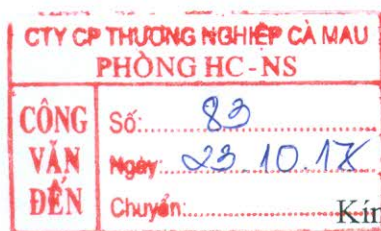 CTY CP THƯƠNG NGHIỆP CÀ MAU
PHÒNG HC-NS
CÔNG VĂN ĐẾN
Số: 83
Ngày: 23.10.17
Chuyển:
Kín